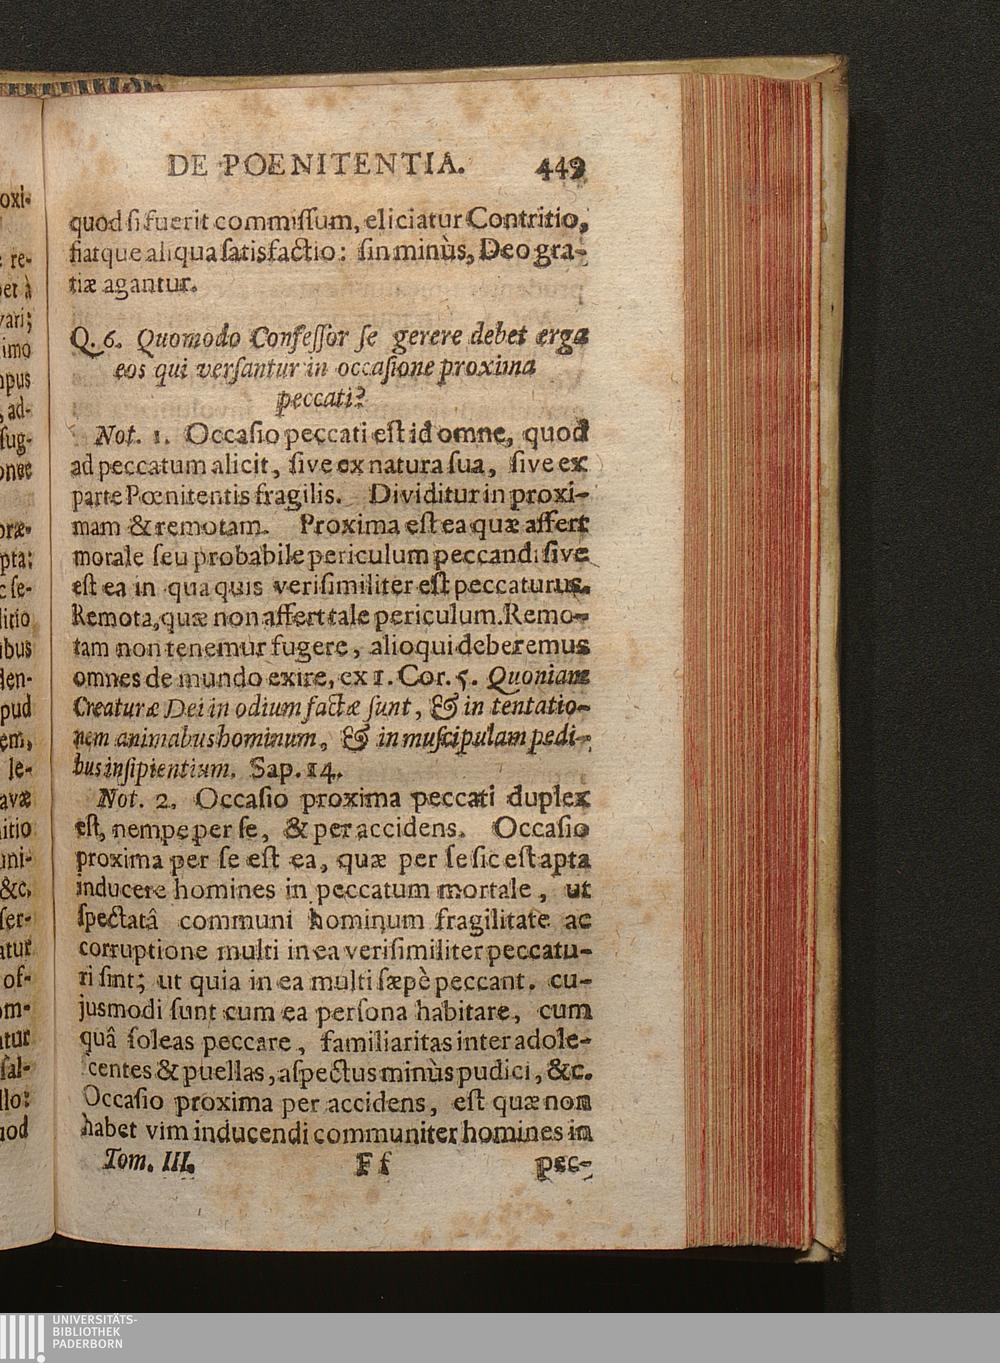 DE POENITENTIA. 449
quod ſi fuerit commiſſum, eliciatur Contritio,
fiatque aliqua ſatisfactio: ſin minùs, Deo gra-
tiæ agantur.
Q. 6. Quomodo Confeſſor ſe gerere debet erga
eos qui verſantur in occaſione proxima
peccati?
Not. 1. Occaſio peccati eſt id omne, quod
ad peccatum alicit, ſive ex natura ſua, ſive ex
parte Pœnitentis fragilis. Dividitur in proxi-
mam & remotam. Proxima eſt ea quæ affert
morale ſeu probabile periculum peccandi ſive
eſt ea in qua quis veriſimiliter eſt peccaturus.
Remota, quæ non affert tale periculum. Remo-
tam non tenemur fugere, alioqui deberemus
omnes de mundo exire, ex 1. Cor. 5. Quoniam
Creaturæ Dei in odium factæ ſunt, & in tentatio-
nem animabus hominum, & in muſcipulam pedi-
bus inſipientium. Sap. 14.
Not. 2. Occaſio proxima peccati duplex
eſt, nempe per ſe, & per accidens. Occaſio
proxima per ſe eſt ea, quæ per ſe ſic eſt apta
inducere homines in peccatum mortale, ut
ſpectatâ communi hominum fragilitate ac
corruptione multi in ea veriſimiliter peccatu-
ri ſint; ut quia in ea multi ſæpè peccant. cu-
jusmodi ſunt cum ea perſona habitare, cum
quâ ſoleas peccare, familiaritas inter adole-
centes & puellas, aſpectus minùs pudici, &c.
Occaſio proxima per accidens, eſt quæ non
habet vim inducendi communiter homines in
Tom. III. F f pec-
oxi-
re-
et à
vari;
imo
pus
ad-
ſug-
onec
præ-
pta:
c ſe-
litio
ibus
den-
pud
em,
le-
avæ
itio
uni-
&c.
ſer-
atur
of-
om-
tur
ſal-
llo:
uod
UNIVERSITÄTS-
BIBLIOTHEK
PADERBORN